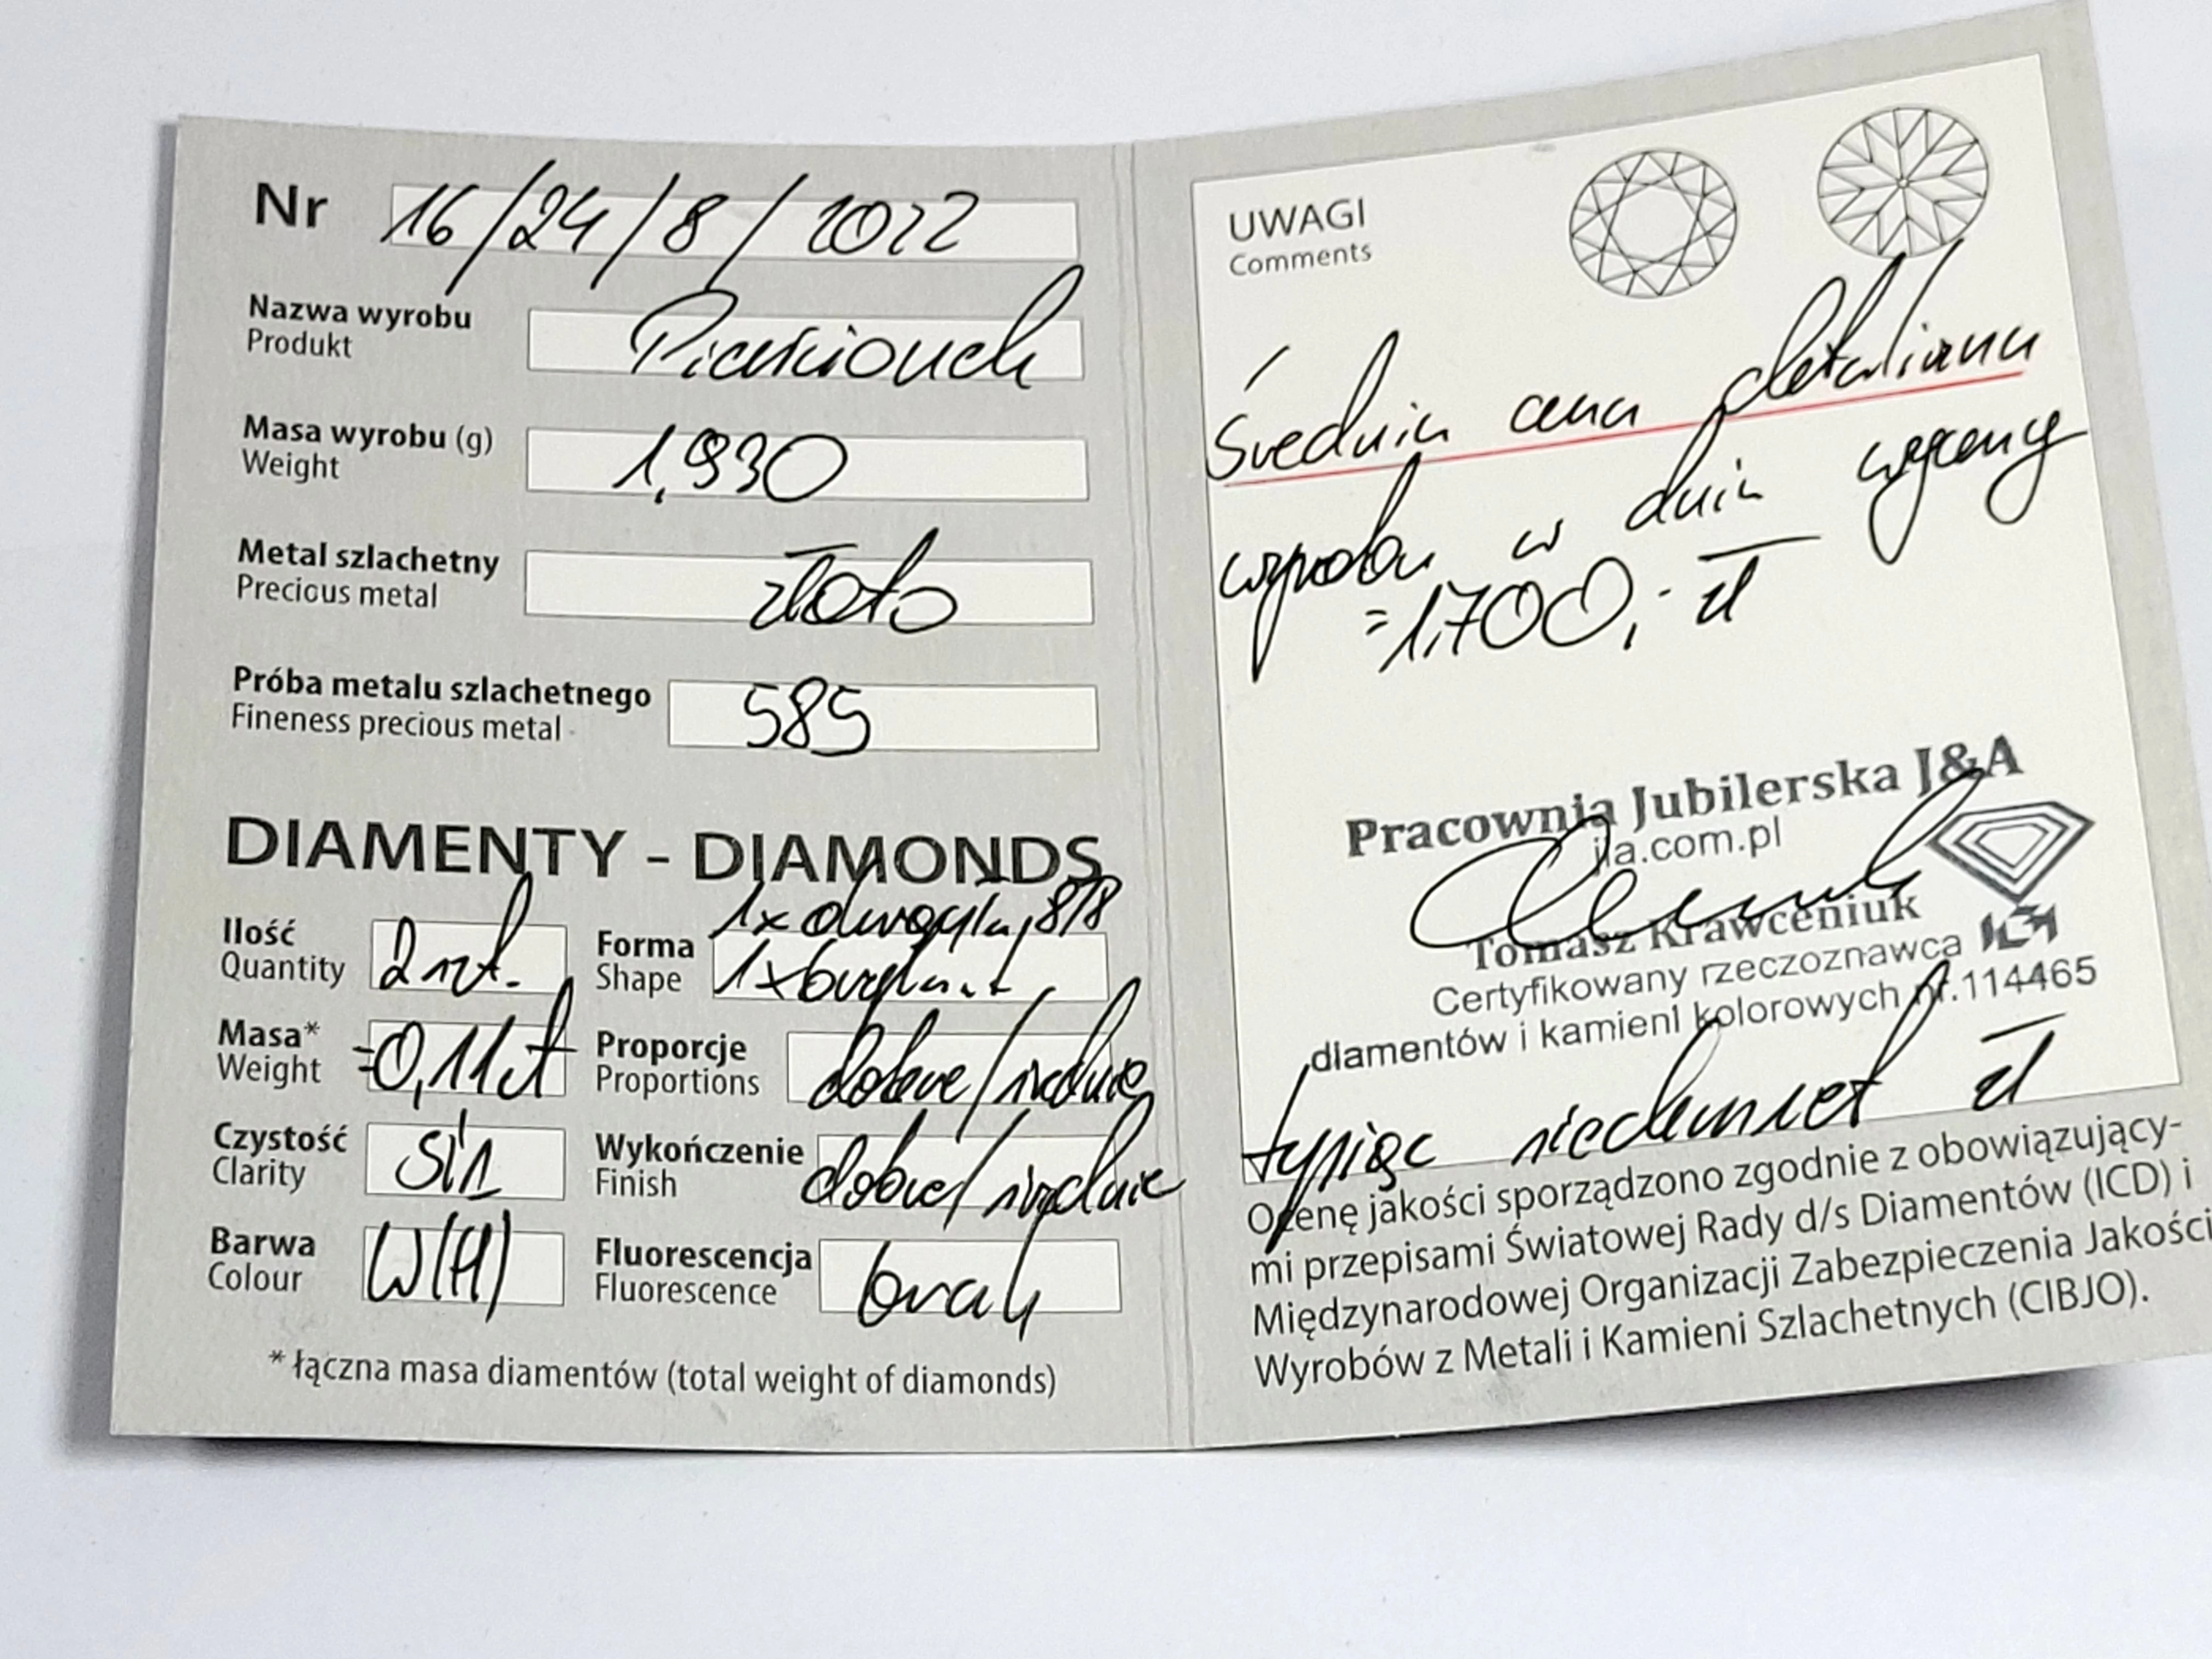 Nr 16/24/8/2022
Nazwa wyrobu Pierścionek
Produkt
Masa wyrobu (g) 1,930
Weight
Metal szlachetny złoto
Precious metal
Próba metalu szlachetnego 585
Fineness precious metal
DIAMENTY - DIAMONDS
1x okrągła, 8/8
Ilość 2 szt. Forma 1x brylant
Quantity Shape
Masa* =0,11ct Proporcje dobre/średnie
Weight Proportions
Czystość SI1 Wykończenie dobre/średnie
Clarity Finish
Barwa W(H) Fluorescencja brak
Colour Fluorescence
* łączna masa diamentów (total weight of diamonds)
UWAGI
Comments
Średnia cena detaliczna
wyrobu w dniu wyceny
=1.700,- zł
Pracownia Jubilerska J&A
jla.com.pl
Tomasz Krawceniuk
Certyfikowany rzeczoznawca
diamentów i kamieni kolorowych nr.114465
tysiąc siedemset zł
Ocenę jakości sporządzono zgodnie z obowiązujący-
mi przepisami Światowej Rady d/s Diamentów (ICD) i
Międzynarodowej Organizacji Zabezpieczenia Jakości
Wyrobów z Metali i Kamieni Szlachetnych (CIBJO).